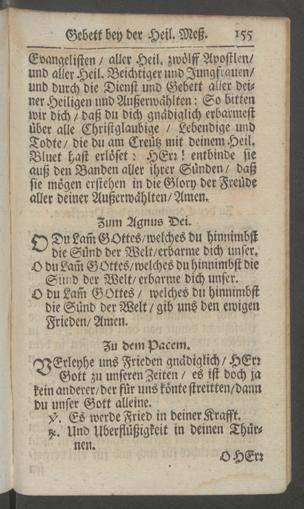 Gebett bey der Heil. Meß. 155
Evangelisten / aller Heil. zwölff Apostlen /
und aller Heil. Beichtiger und Jungfrauen /
und durch die Dienst und Gebett aller dei-
ner Heiligen und Außerwählten: So bitten
wir dich / daß du dich gnädiglich erbarmest
über alle Christglaubige / Lebendige und
Todte / die du am Creütz mit deinem Heil.
Bluet hast erlöset: HErr! entbinde sie
auß den Banden aller ihrer Sünden / daß
sie mögen erstehen in die Glory der Freude
aller deiner Außerwählten / Amen.
Zum Agnus Dei.
O Du Lam̃ GOttes / welches du hinnimbst
die Sünd der Welt / erbarme dich unser.
O du Lam̃ GOttes / welches du hinnimbst
die Sünd der Welt / erbarme dich unser.
O du Lam̃ GOttes / welches du hinnimbst
die Sünd der Welt / gib uns den ewigen
Frieden / Amen.
Zu dem Pacem.
VErleyhe uns Frieden gnädiglich / HErr
Gott zu unseren Zeiten / es ist doch ja
kein anderer / der für uns könte streitten / dann
du unser Gott alleine.
℣. Es werde Fried in deiner Krafft.
℟. Und Uberflüßigkeit in deinen Thür-
nen.
O HErr